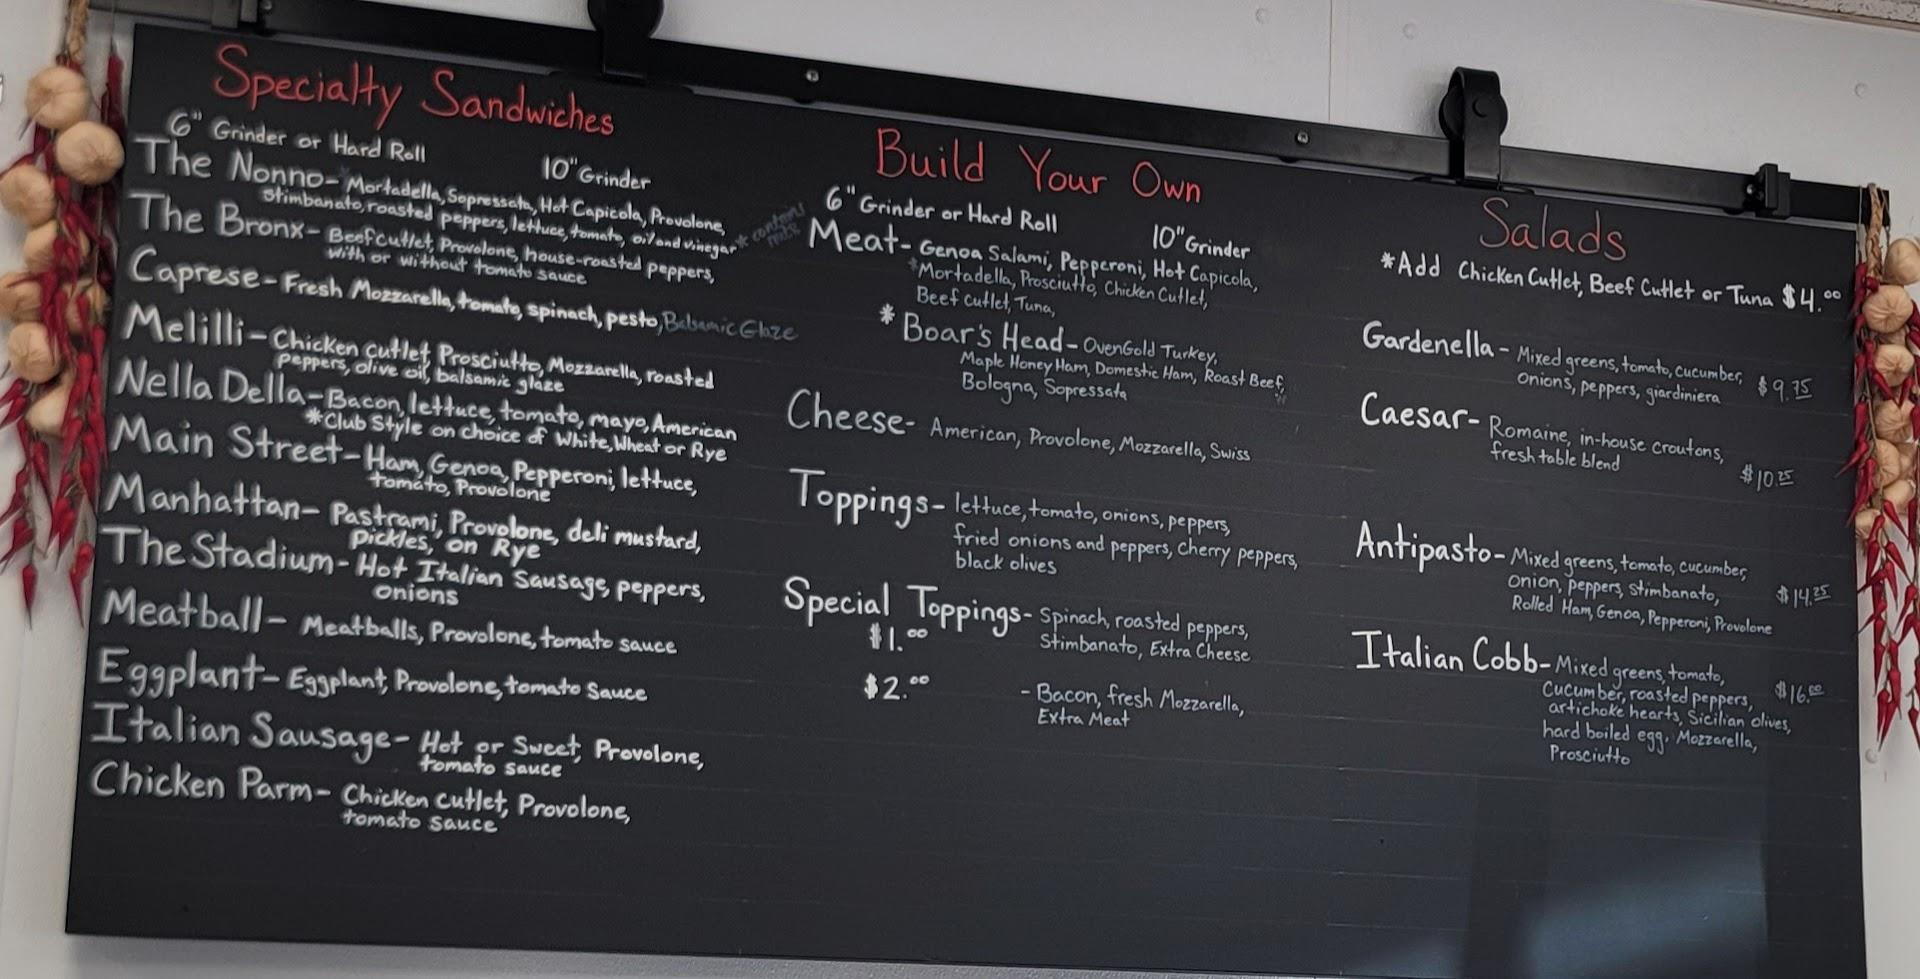 Specialty Sandwiches
6" Grinder or Hard Roll
10" Grinder
The Nonno- Mortadella, Sopressata, Hot Capicola, Provolone,
Stimbanato, roasted peppers, lettuce, tomato, oil and vinegar * contains nuts
The Bronx- Beef cutlet, Provolone, house-roasted peppers,
with or without tomato sauce
Caprese- Fresh Mozzarella, tomato, spinach, pesto, Balsamic Glaze
Melilli- Chicken cutlet, Prosciutto, Mozzarella, roasted
peppers, olive oil, balsamic glaze
Nella Della- Bacon, lettuce, tomato, mayo, American
*Club Style on choice of White, Wheat or Rye
Main Street- Ham, Genoa, Pepperoni, lettuce,
tomato, Provolone
Manhattan- Pastrami, Provolone, deli mustard,
pickles, on Rye
The Stadium- Hot Italian Sausage, peppers,
onions
Meatball- Meatballs, Provolone, tomato sauce
Eggplant- Eggplant, Provolone, tomato sauce
Italian Sausage- Hot or Sweet, Provolone,
tomato sauce
Chicken Parm- Chicken cutlet, Provolone,
tomato sauce
Build Your Own
6" Grinder or Hard Roll
10" Grinder
Meat- Genoa Salami, Pepperoni, Hot Capicola,
*Mortadella, Prosciutto, Chicken Cutlet,
Beef cutlet, Tuna,
* Boar's Head- OvenGold Turkey,
Maple Honey Ham, Domestic Ham, Roast Beef,
Bologna, Sopressata
Cheese- American, Provolone, Mozzarella, Swiss
Toppings- lettuce, tomato, onions, peppers,
fried onions and peppers, cherry peppers,
black olives
Special Toppings- Spinach, roasted peppers,
$1.00 Stimbanato, Extra Cheese
$2.00 - Bacon, fresh Mozzarella,
Extra Meat
Salads
*Add Chicken Cutlet, Beef Cutlet or Tuna $4.00
Gardenella- Mixed greens, tomato, cucumber,
onions, peppers, giardiniera $9.75
Caesar- Romaine, in-house croutons,
fresh table blend
$10.25
Antipasto- Mixed greens, tomato, cucumber,
onion, peppers, stimbanato, $14.25
Rolled Ham, Genoa, Pepperoni, Provolone
Italian Cobb- Mixed greens, tomato,
Cucumber, roasted peppers, $16.00
artichoke hearts, Sicilian olives,
hard boiled egg, Mozzarella,
Prosciutto